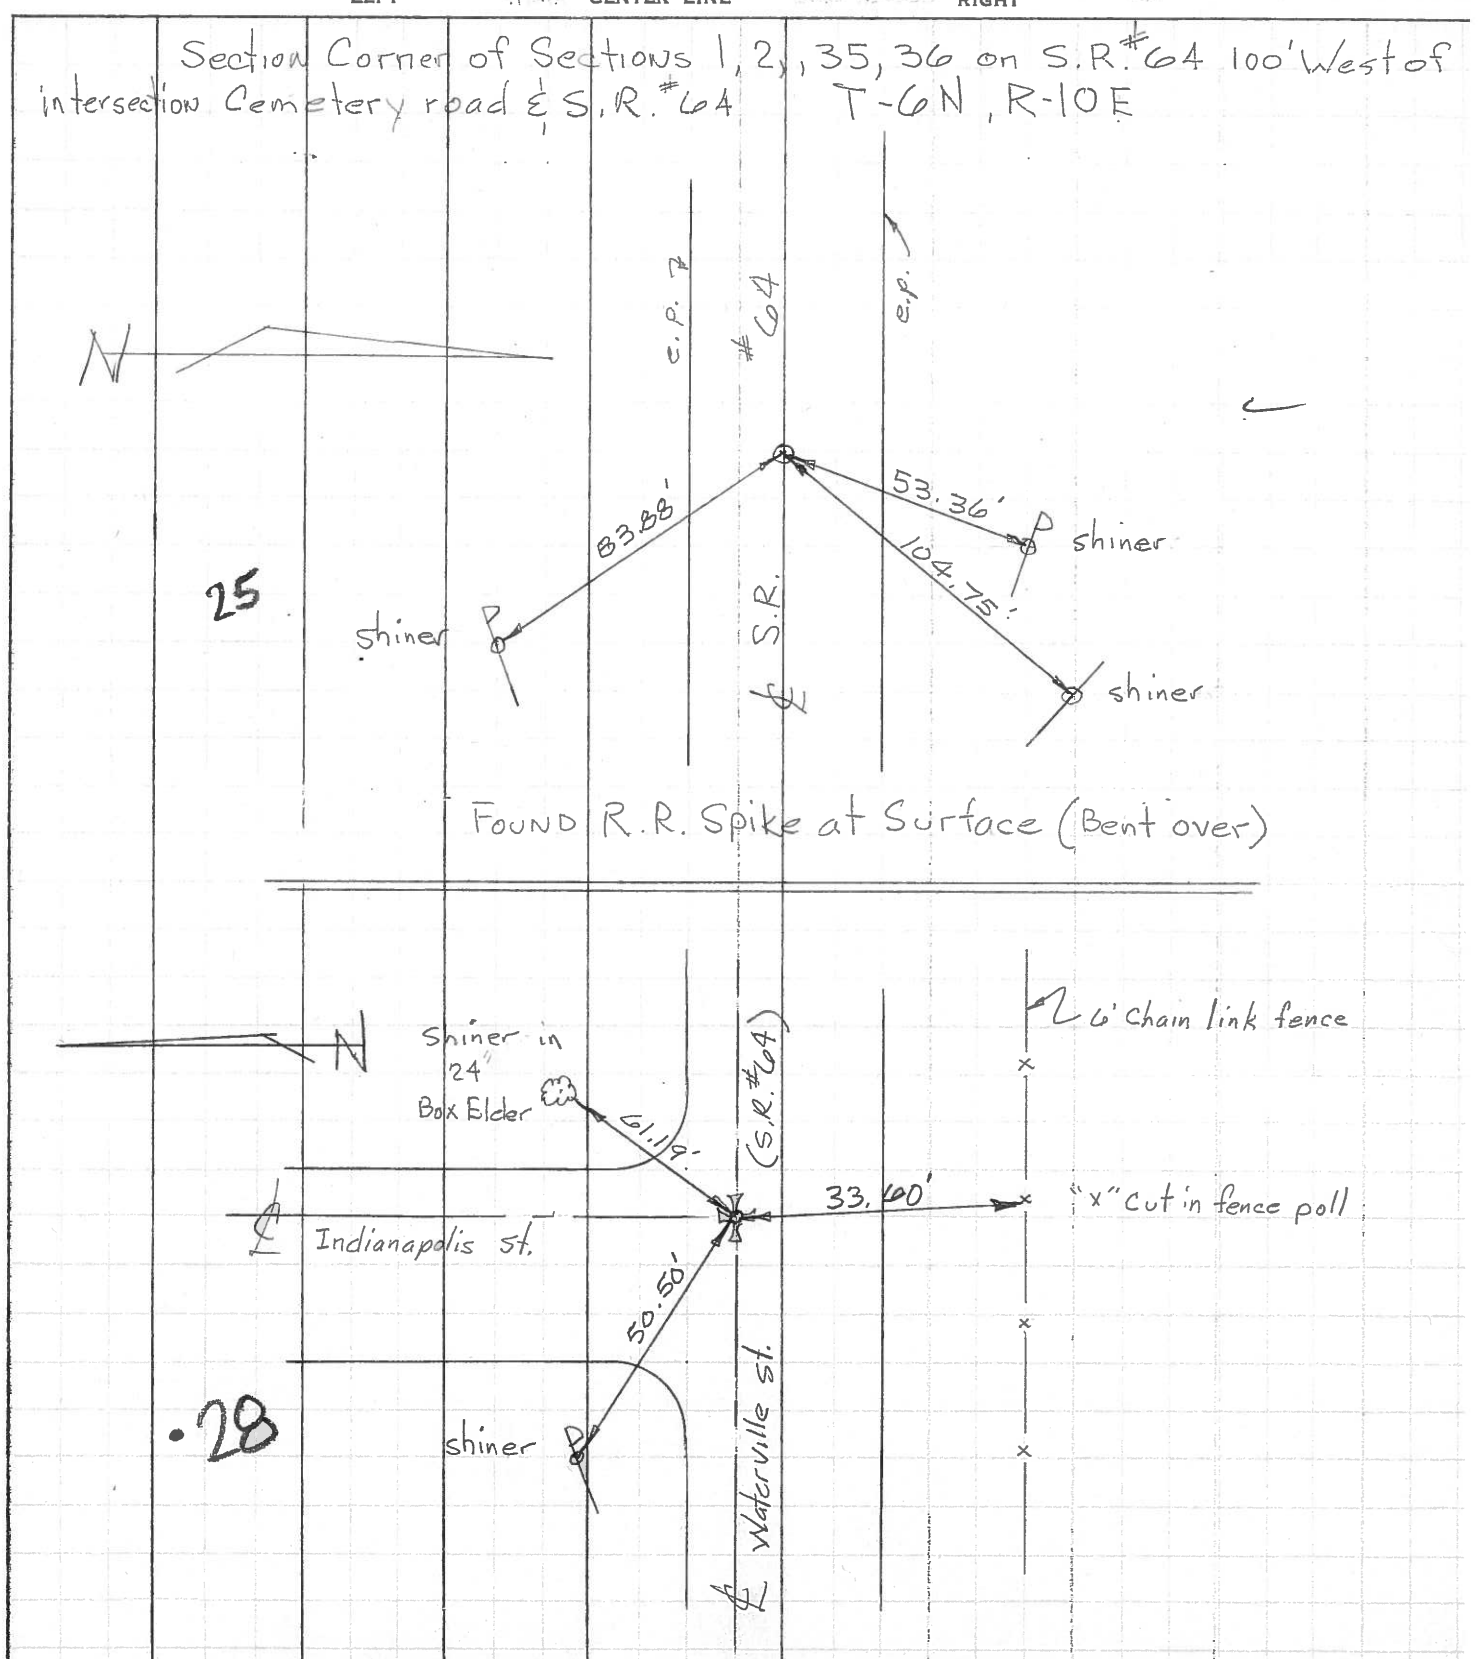 CENTER LINE
RIGHT
Section Corner of Sections 1, 2, , 35, 36 on S.R. #64 100' West of
intersection Cemetery road & S.R. #64 T-6N, R-10E
e.p.
#64
e.p.
N
83.88'
53.36'
P
shiner
104.75'
25
P
shiner
S.R.
℄
shiner
FOUND R.R. Spike at Surface (Bent over)
N
Shiner in
24"
Box Elder
61.19'
(S.R. #64)
6' Chain link fence
33.60'
"x" cut in fence poll
℄
Indianapolis st.
50.50'
.28
shiner
P
℄ Waterville st.